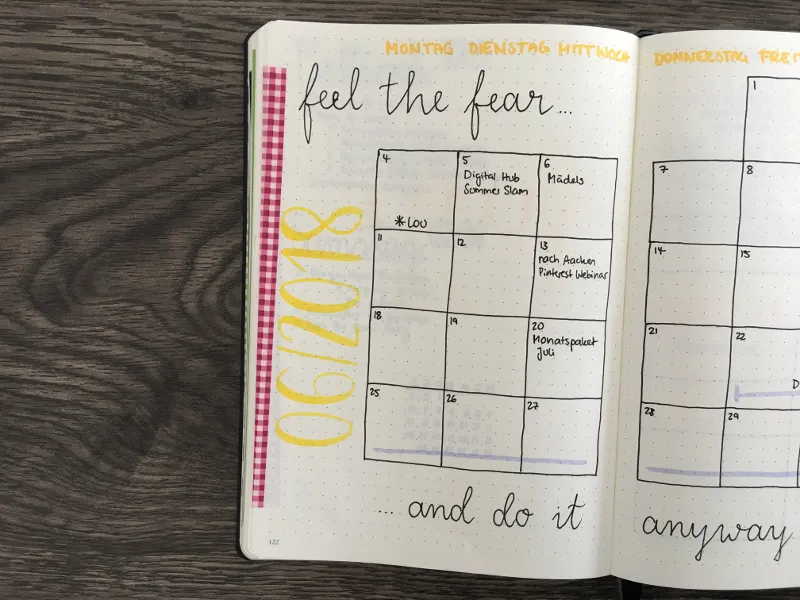 MONTAG DIENSTAG MITTWOCH
DONNERSTAG FREIT
feel the fear...
06/2018
4
* LOU
5
Digital Hub
Summer Slam
6
Mädels
11
12
13
nach Aachen
Pinterest Webinar
18
19
20
Monatspaket
Juli
25
26
27
1
7
8
14
15
21
22
D
28
29
... and do it
anyway
122